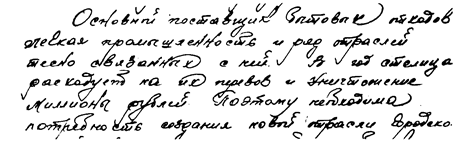 Основной поставщик бытовых отходов
легкая промышленность и ряд отраслей
тесно связанных с ней. В год столица
расходует на их перевоз и уничтожение
миллионы рублей Поэтому необходима
потребность создания новой отрасли городско